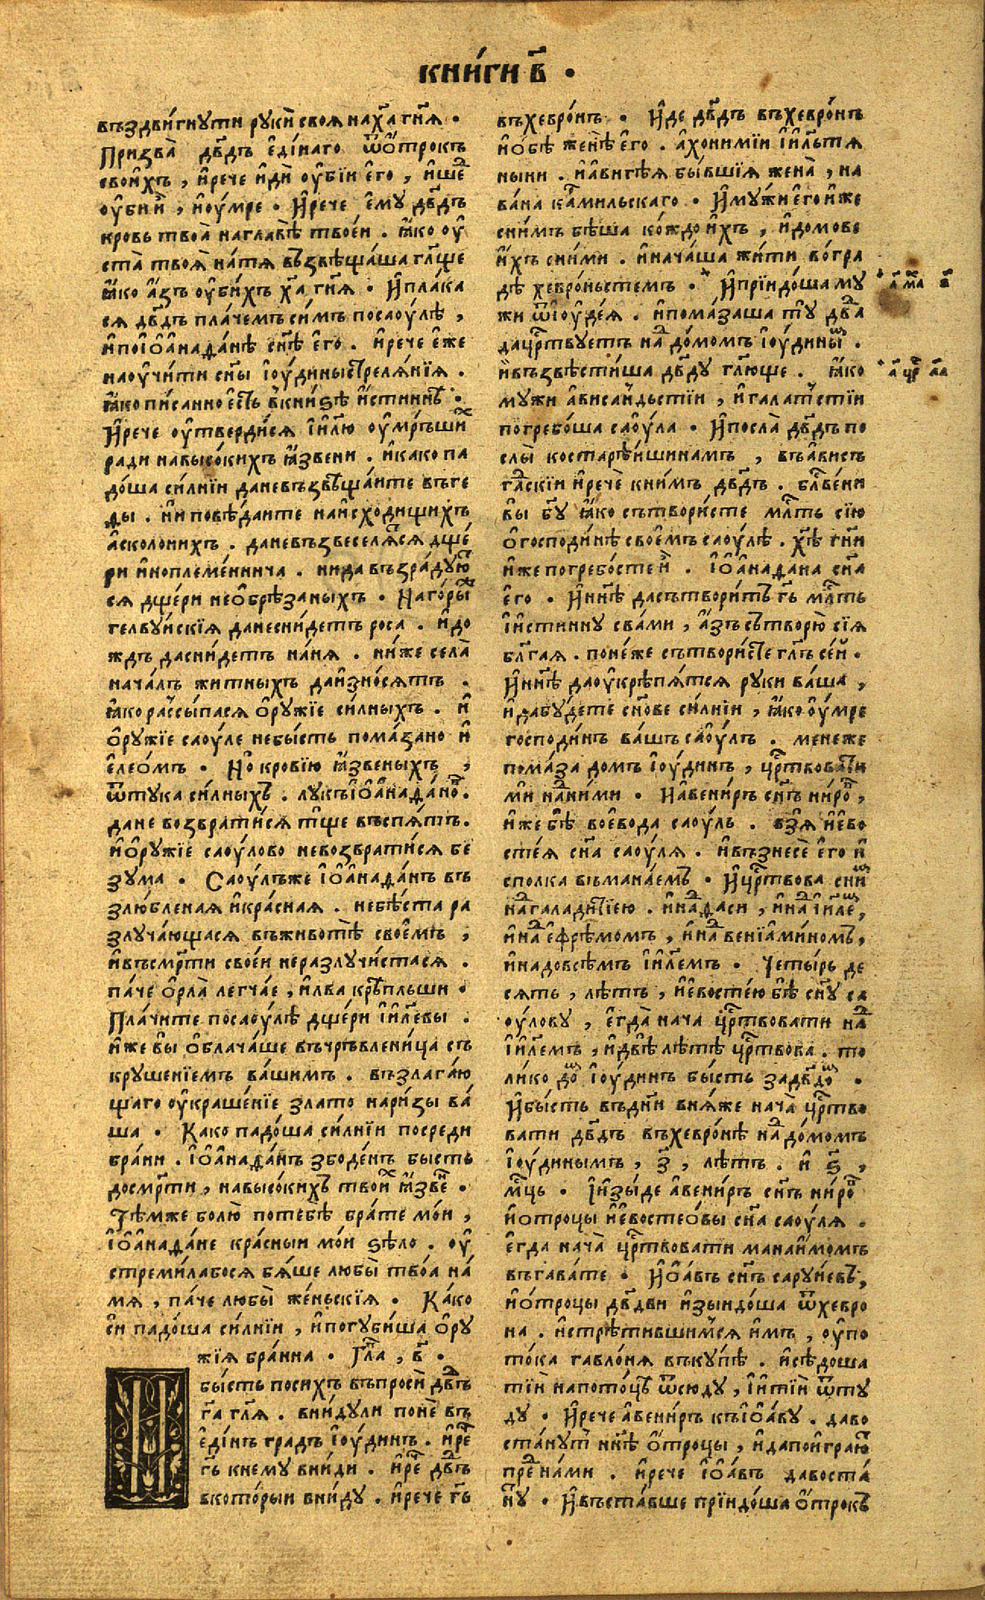 книги в҃ ·
въздвигнути руки своя наха гн҃я ·
Призва дв҃дъ единаго ѿ отрокъ
своихъ , и рече иди оубіи его , и ше
оуби и , и оумре · И рече ему дв҃дъ
кровь твоа на главѣ твоеи . ꙗко оу
ста твоя на тя възвѣщаша гл҃ще
ꙗко азъ оубихъ ха гн҃я · И плака
ся дв҃дъ плачемъ симъ по саоулѣ ,
и по іѡанаѳанѣ сн҃ѣ его . и рече еже
наоучити сн҃ы іоудины стрелянія .
ꙗко писанно есть в книзѣ истиннъ ·
И рече оутвердися іи҃лю оумръших
ради на высокихъ ꙗзвени . и како па
доша силніи да не възвѣщаите въ ге
ѳы . ни повѣдаите на исходищихъ
асколонихъ . да не възвеселятся дще
ри иноплеменнича . ни да възрадую
ся дщери необрѣзаныхъ · На горы
гелвуискія да не снидетъ роса . и до
ждъ да снидетъ на ня . ниже села
началъ житныхъ да износятъ .
ꙗко рассыпася оружіе силныхъ . и
оружіе саоуле не бысть помазано и
елеомъ · Но кровію ꙗзвеныхъ ,
ѿ тука силныхъ . лукъ іѡанаѳано .
дане возвратися тще въспять .
и оружіе саоулово не возвратися бе
зума · Саоулъже іѡанаѳанъ въ
злюбленая и красная . не бѣста ра
злучающася въ животѣ своемъ ,
и въ смр҃ти своеи не разлучистася .
паче орла легчае , и лва крѣпльши ·
Плачите по саоулѣ дщери іи҃левы .
иже вы облачаше въ чръвленица съ
крушеніемъ вашимъ . възлагаю
щаго оукрашеніе злато на ризы ва
ша · Како падоша силніи посреди
брани . іѡанаѳанъ збоденъ бысть
до смр҃ти , на высокихъ твои ꙗзве ·
Тѣмже болю по тебѣ брате мои ,
іѡанаѳане красныи мои ѕѣло . оу
стремилабося бяше любы твоа на
мя , паче любы женьскія · Како
си падоша силніи , и погубиша ору
жія бранна · Гл҃а , в҃ ·
И
бысть по сихъ въпроси дв҃дъ
га гл҃я . вниидули поне въ
единъ градъ іоудинъ . и ре
гь к нему вниди . и ре дв҃дъ
в которыи вниду . и рече гь
въ хевронъ · Иде дв҃дъ въ хевронъ
и обѣ женѣ его . ахономіи іи҃лътя
ныни . и авигѣя бывшія жена , на
вана кармильскаго · И мужи его иже
с нимъ бѣша кождо ихъ , и домове
ихъ с ними . и начаша жити во гра
дѣ хевроньстемъ · И пріидоша му
жи ѿ іоудея . и помазаша ту дв҃да
да цр҃твуетъ над домомъ іоудины .
и възвѣстиша дв҃ду гл҃юще . ꙗко
мужи ависаидьстіи , и галатстіи
погребоша саоула · И посла дв҃дъ по
слы ко старѣишинамъ , въ ависъ
гаскіи и рече к нимъ дв҃дъ . бл҃вени
вы бг҃у ꙗко сътвористе мл҃ть сію
о господинѣ своемъ саоулѣ . хѣ гн҃и
иже погребосте и . іѡанаѳана сн҃а
его · И нн҃ѣ да сътворитъ гь мл҃ть
и истинну с вами , и азъ сътворю сія
бл҃гая . понеже сътвористе гл҃ъ сеи .
И нн҃ѣ да оукрѣпятся руки ваша ,
и да будете сн҃ове силніи , ꙗко оумре
господинъ вашъ саоулъ . мене же
помаза домъ іоудинъ , цр҃твовати
ми над ними · И авениръ сн҃ъ ниро ,
иже бѣ воевода саоуль . взя иево
стея сн҃а саоуля . и възнесе его и
с полка в іьманаемъ · И цр҃твова с ни
над галадитіею . и над аси , и над іи҃ле ,
и над ефремомъ , и над веніаминомъ ,
и надо всѣмъ іи҃лемъ · Четырь де
сять , лѣтъ , иевостею бѣ сн҃у са
оулову , егда нача цр҃твовати над
іи҃лемъ , и двѣ лѣтѣ цр҃твова . то
лико до іоудинъ бысть за дв҃до ·
И бысть въ дн҃и в няже нача цр҃тво
вати дв҃дъ въ хевронѣ над домомъ
іоудинымъ , з҃ , лѣтъ . и ѕ҃ ,
мц҃ь · И изыде авениръ сн҃ъ ниро
и отроцы иевостеовы сн҃а саоуля .
егда нача цр҃твовати манаимомъ
въ гаваѳе · И ѡавъ сн҃ъ саруиевъ ,
и отроцы дв҃дви изыидоша ѿ хевро
на . и стрѣтившимся имъ , оу по
тока гавлоня въкупѣ . и сѣдоша
тіи на потоцѣ ѿсюду , і и тіи ѿту
ду · И рече авениръ къ іѡаву . даво
станутъ нн҃ѣ отроцы , и да поиграю
пре нами . и рече іѡавъ да воста
ну · И въставше пріидоша отрокъ